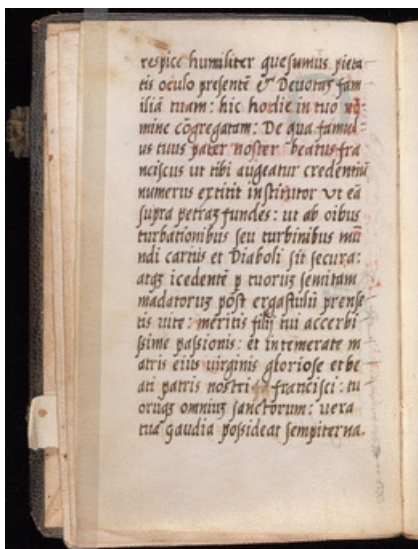 respice humiliter quesumus pieta
tis oculo presentē & Deuotaʒ fam
iliā tuam: hic hodie in tuo no
mine cōgregatam: De qua famul
us tuus pater noster beatus fra
nciscus ut tibi augeatur credentiū
numerus extitit institutor ut eā
supra petraʒ fundes: ut ab oibus
turbationibus seu turbinibus mū
ndi carnis et Diaboli sit secura:
atqʒ icedentē p tuoruʒ semitam
madatoruʒ post ergastulū prense
tis uite: meritis filij tui accerbi
ssime passionis: et intemerate m
atris eius uirginis gloriose et be
ati patris nostri francisci: tu
oruqʒ omniuʒ sanctorum: uera
tua gaudia possideat sempiterna.